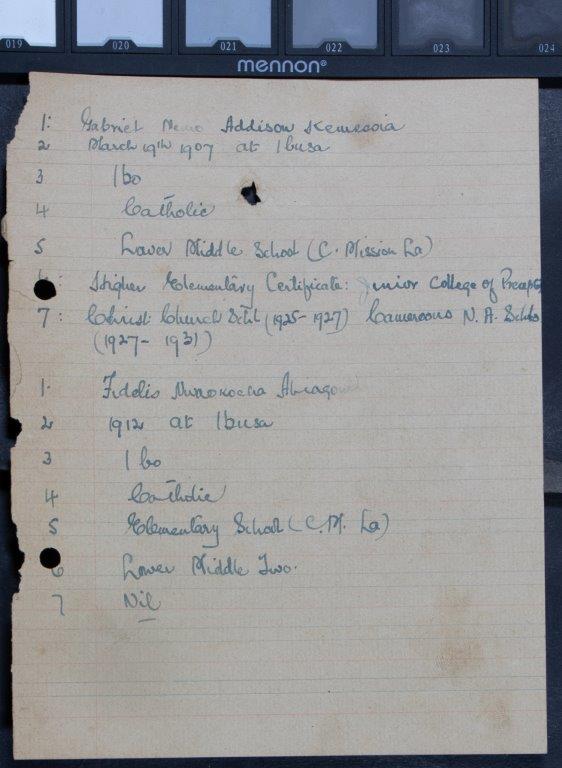 019 020 021 022 023 024
mennon®
1: Gabriel Addison
2 March 19th 1907 at Ibusa
3 Ibo
4 Catholic
5 Lower Middle School (C. Mission La)
6: Higher Elementary Certificate: Junior College of Precept
7: Christ Church Schl (1925-1927) Cameroons N. A. Schls
(1927- 1931)
1. Fidelis
2 1912 at Ibusa
3 Ibo
4 Catholic
5 Elementary School (C.M. La)
6 Lower Middle Two.
7 Nil